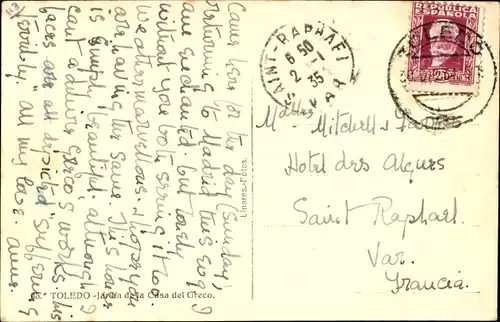 Came here for the day (Sunday)
returning to Madrid this evg. I
am enchanted. but lonely
without you both seeing it too.
Weather marvellous. I hope you
are having the same. This house
is simply beautiful although I
can't admire Greco's works. his
faces are all depicted suffering
horribly. All my love. Anne.
65. TOLEDO -Jardín de la Casa del Greco.
Linares.-Fotos.
REPUBLICA
ESPAÑOLA
25
SAINT-RAPHAEL
6 50
2 -1
35
VAR
TOLEDO
Mitchell
Hotel des Algues
Saint Raphael
Var.
Francia.